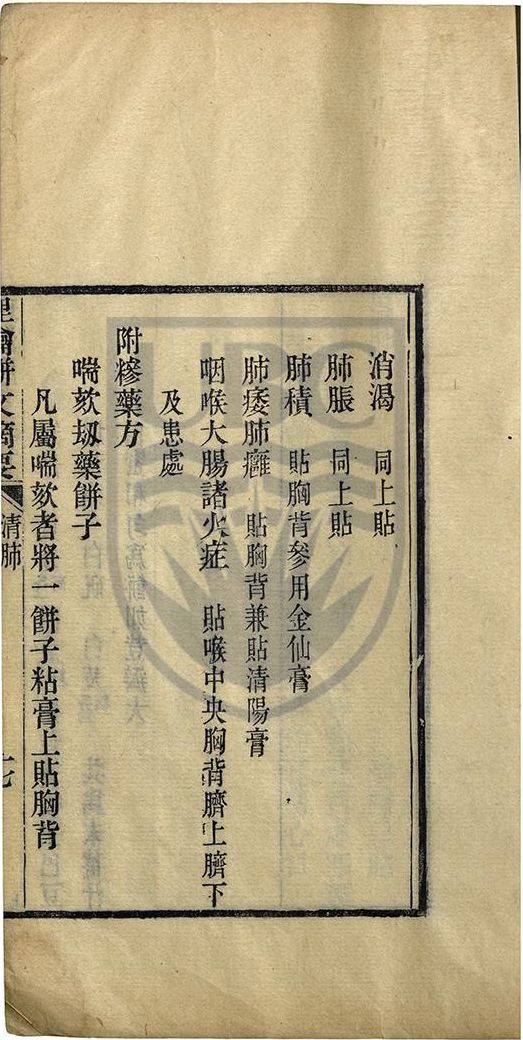 消渴 同上貼
肺脹 同上貼
肺積 貼胸背參用金仙膏
肺痿肺癰 貼胸背兼貼清陽膏
咽喉大腸諸火症 貼喉中央胸背臍上臍下
及患處
附糝藥方
喘欬刼藥餅子
凡屬喘欬者將一餅子粘膏上貼胸背
文摘要 清肺
UBC